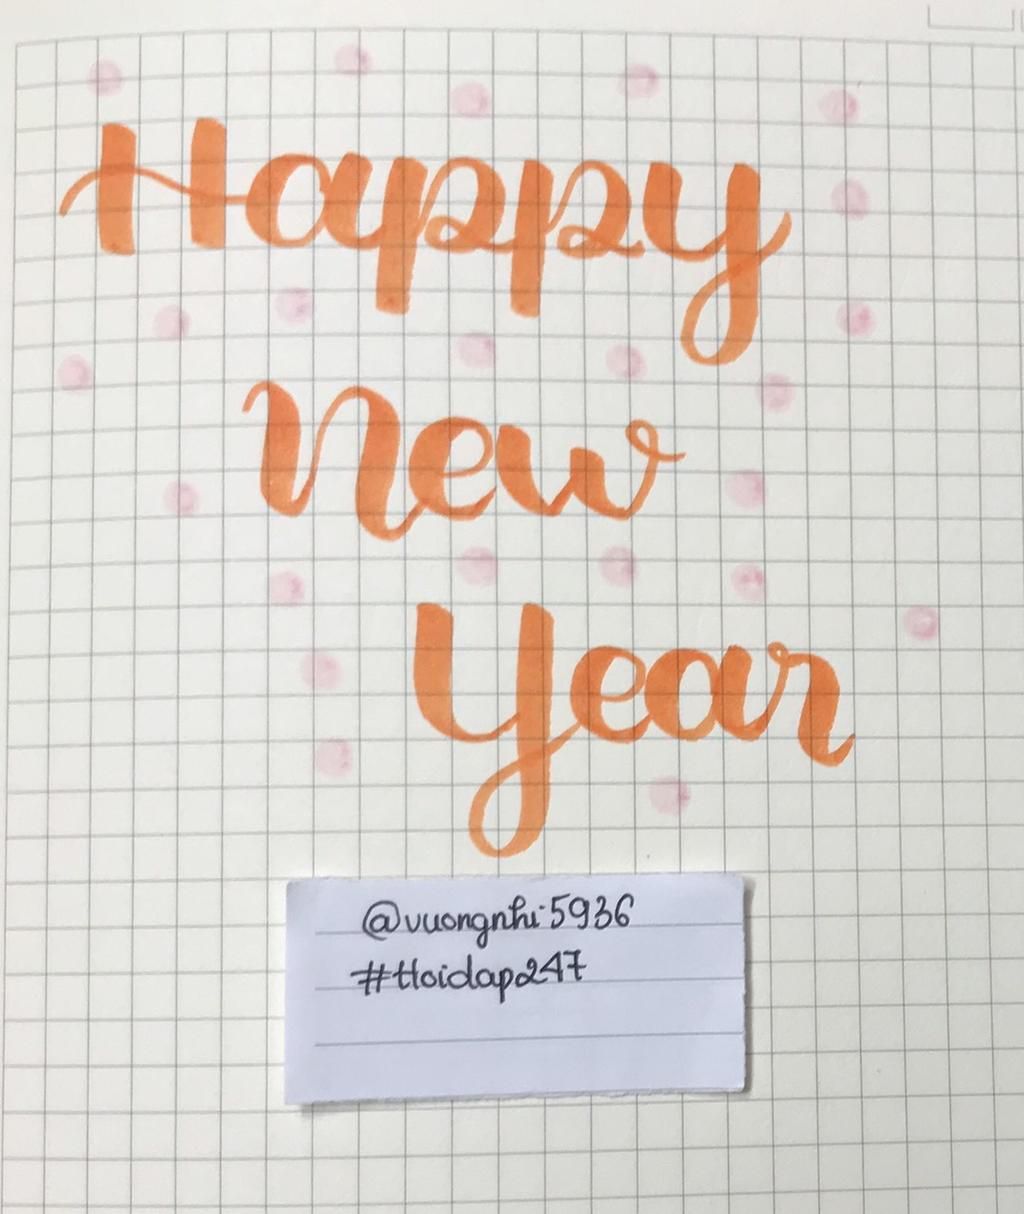 Happy
New
Year
@vuongnhi5936
#Hoidap247